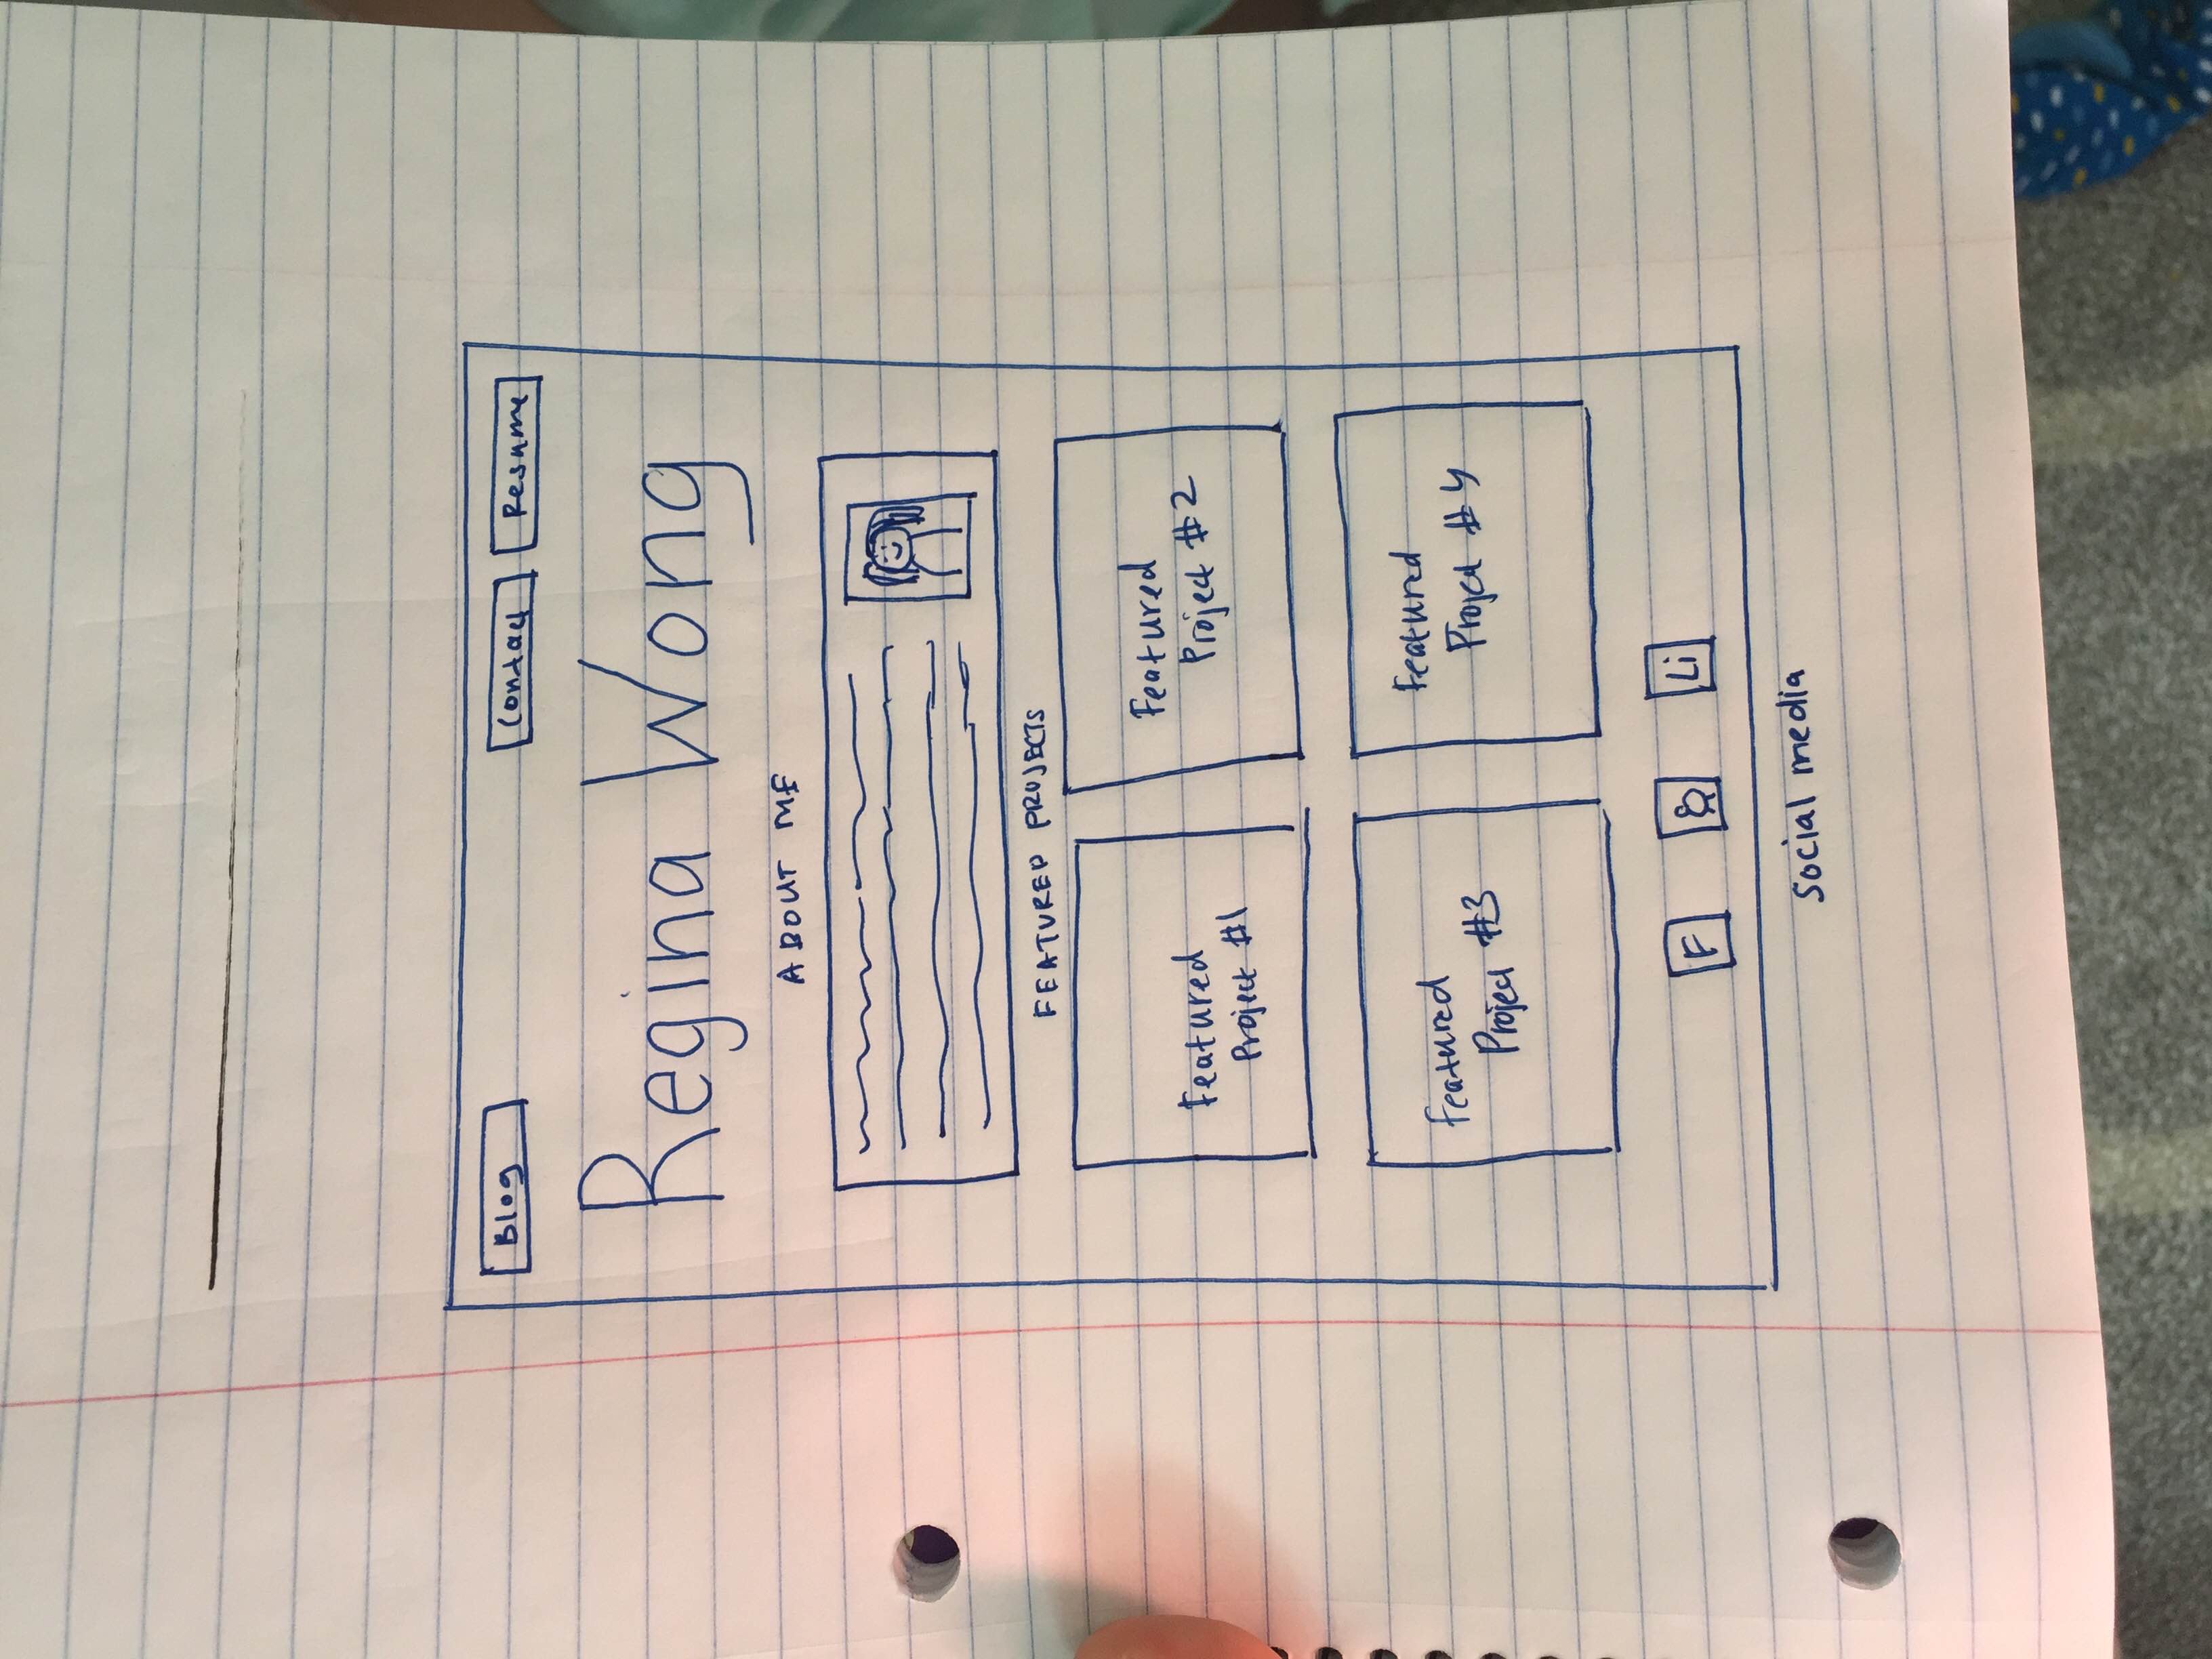 Blog
Contact
Resume
Regina Wong
ABOUT ME
FEATURED PROJECTS
Featured
Project #1
Featured
Project #2
Featured
Project #3
Featured
Project #4
F
Li
Social media